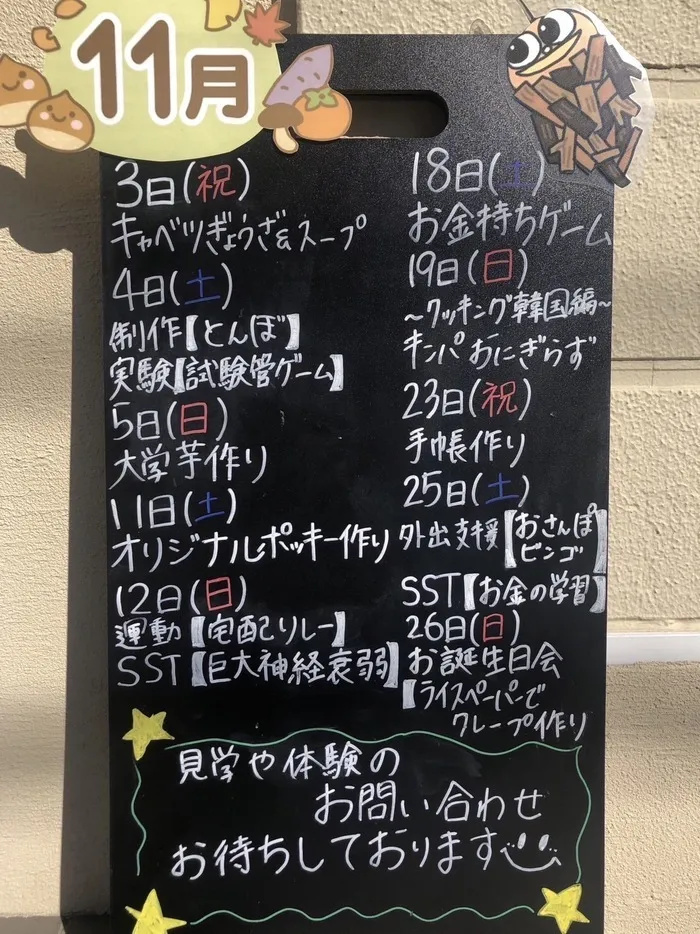 11月
3日(祝)
キャベツぎょうざ&スープ
4日(土)
制作【とんぼ】
実験【試験管ゲーム】
5日(日)
大学芋作り
11日(土)
オリジナルポッキー作り
12日(日)
運動【宅配リレー】
SST【巨大神経衰弱】
18日(土)
お金持ちゲーム
19日(日)
~クッキング韓国編~
キンパおにぎらず
23日(祝)
手帳作り
25日(土)
外出支援【おさんぽ
ビンゴ】
SST【お金の学習】
26日(日)
お誕生日会
【ライスペーパーで
クレープ作り
見学や体験の
お問い合わせ
お待ちしております